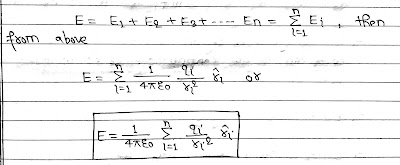 E = E₁ + E₂ + E₃ + ---- En = \sum_{i=1}^{n} Ei , then
from above
E = \sum_{i=1}^{n} \frac{1}{4πε₀} \frac{qi}{ri²} r̂i or
E = \frac{1}{4πε₀} \sum_{i=1}^{n} \frac{qi}{ri²} r̂i